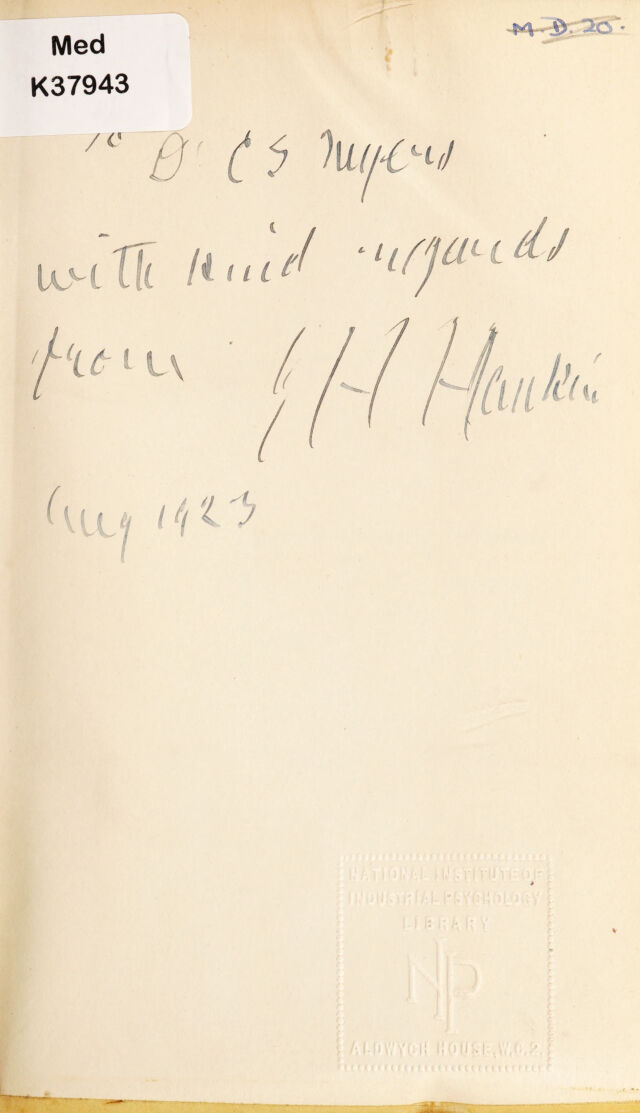 Med
K37943
M.D.20.
To Dr C S Myers
with kind regards
from E H Hankin
Aug 1923
NATIONAL INSTITUTE OF
INDUSTRIAL PSYCHOLOGY
LIBRARY
NIIP
ALDWYCH HOUSE, W.C.2.